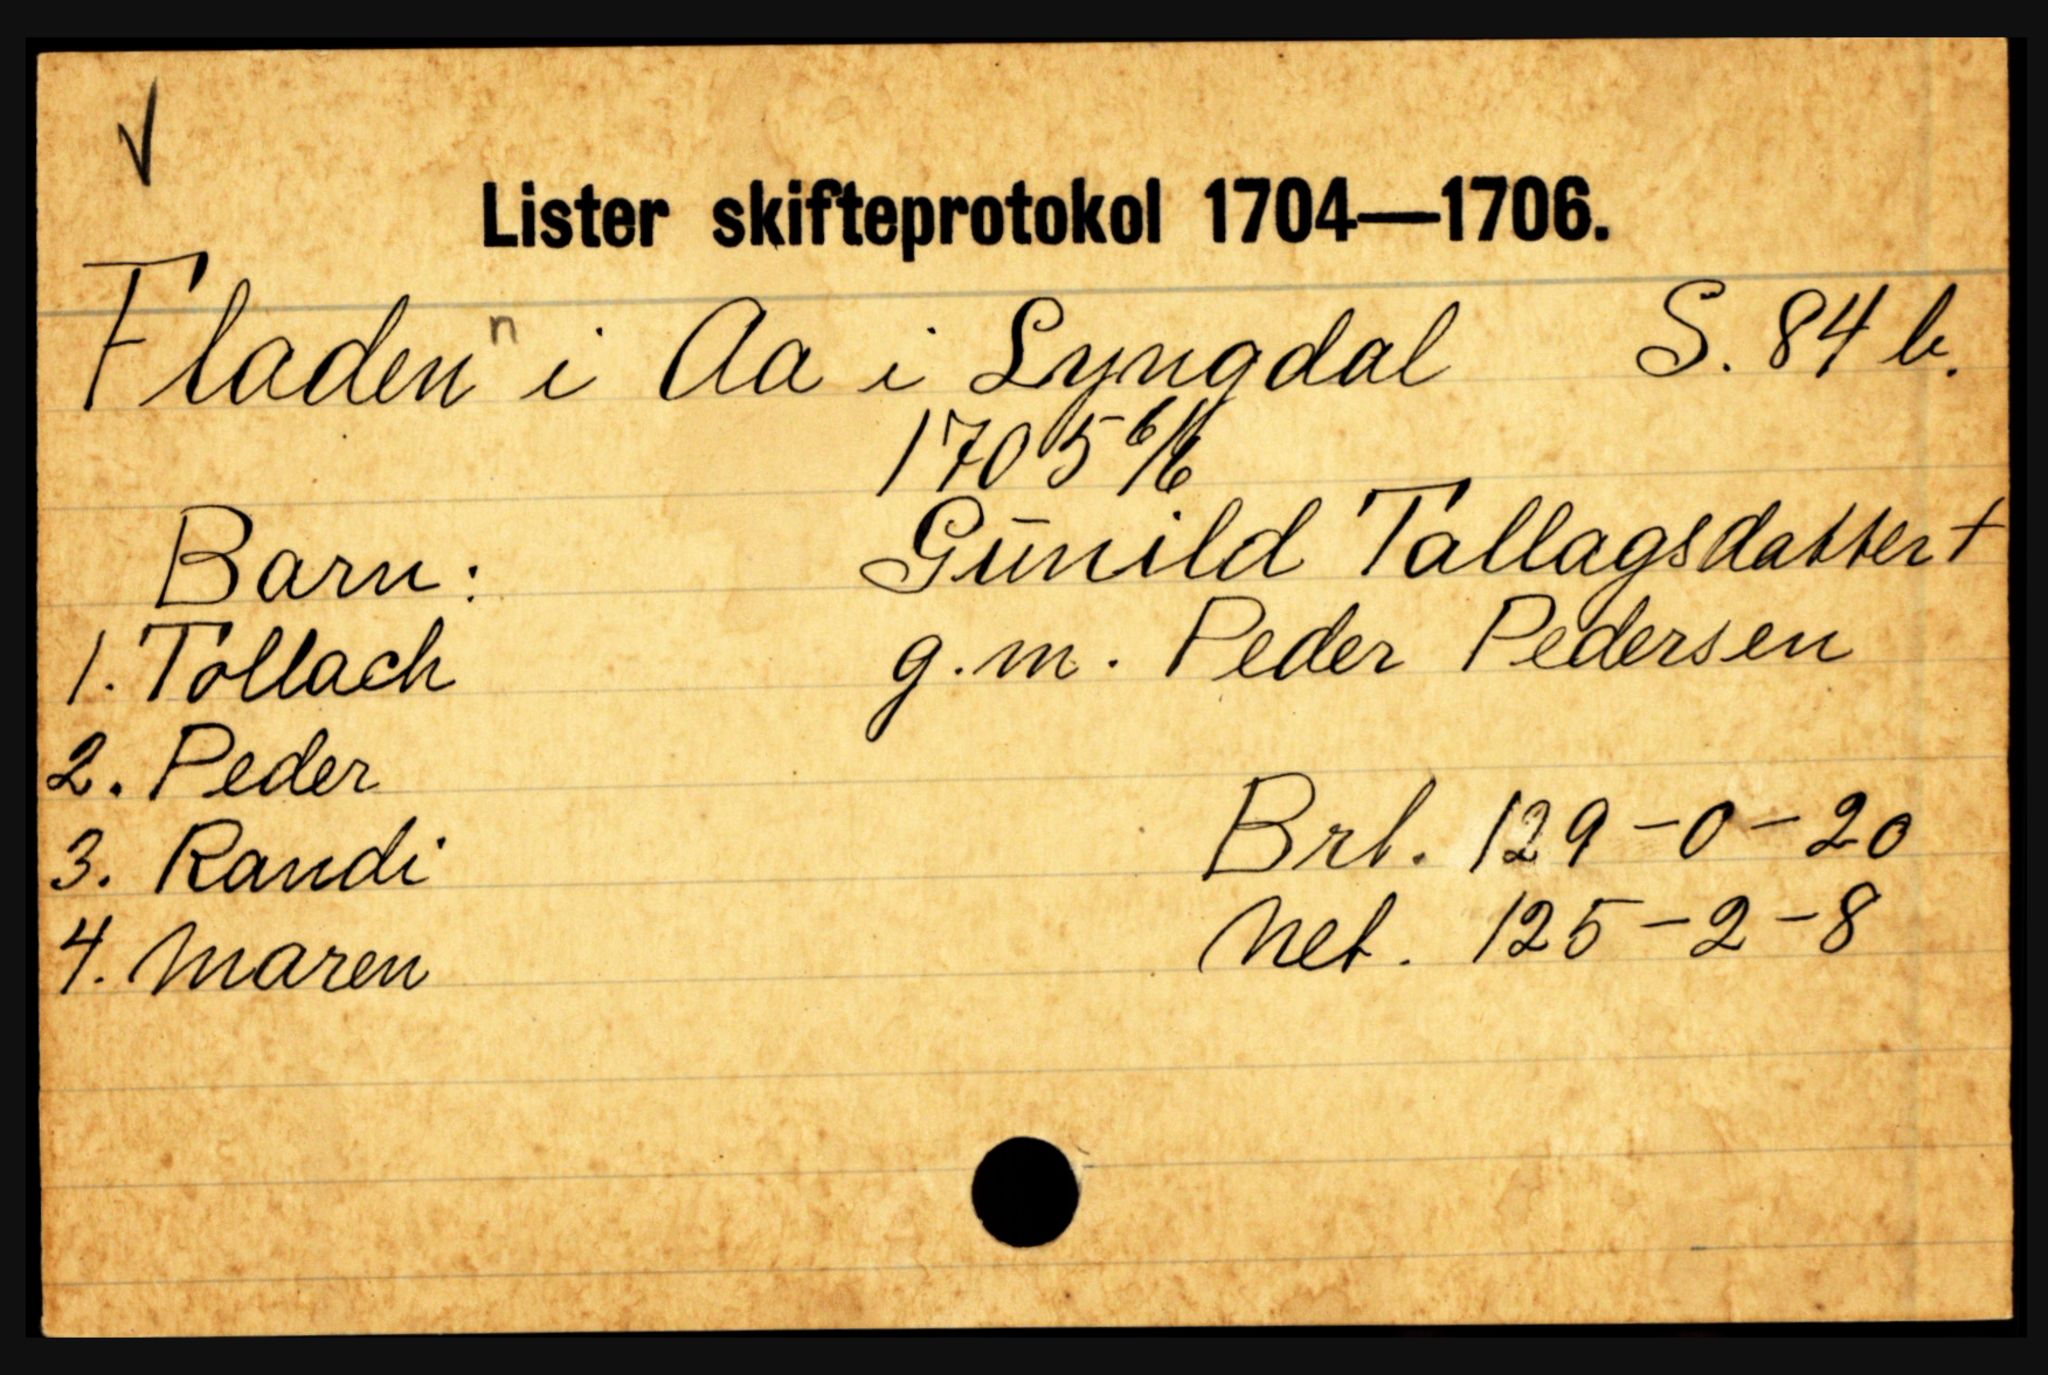 √
Lister skifteprotokol 1704—1706.
Fladen n i Aa i Lyngdal S. 84 b.
1705 6/6
Barn: Gunild Tallagsdatter +
1. Tollach g.m. Peder Pedersen
2. Peder
3. Randi Brt. 129-0-20
4. Maren Net. 125-2-8